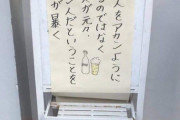 人をアカンように
るのではなく
が元々、
だということを
が暴く